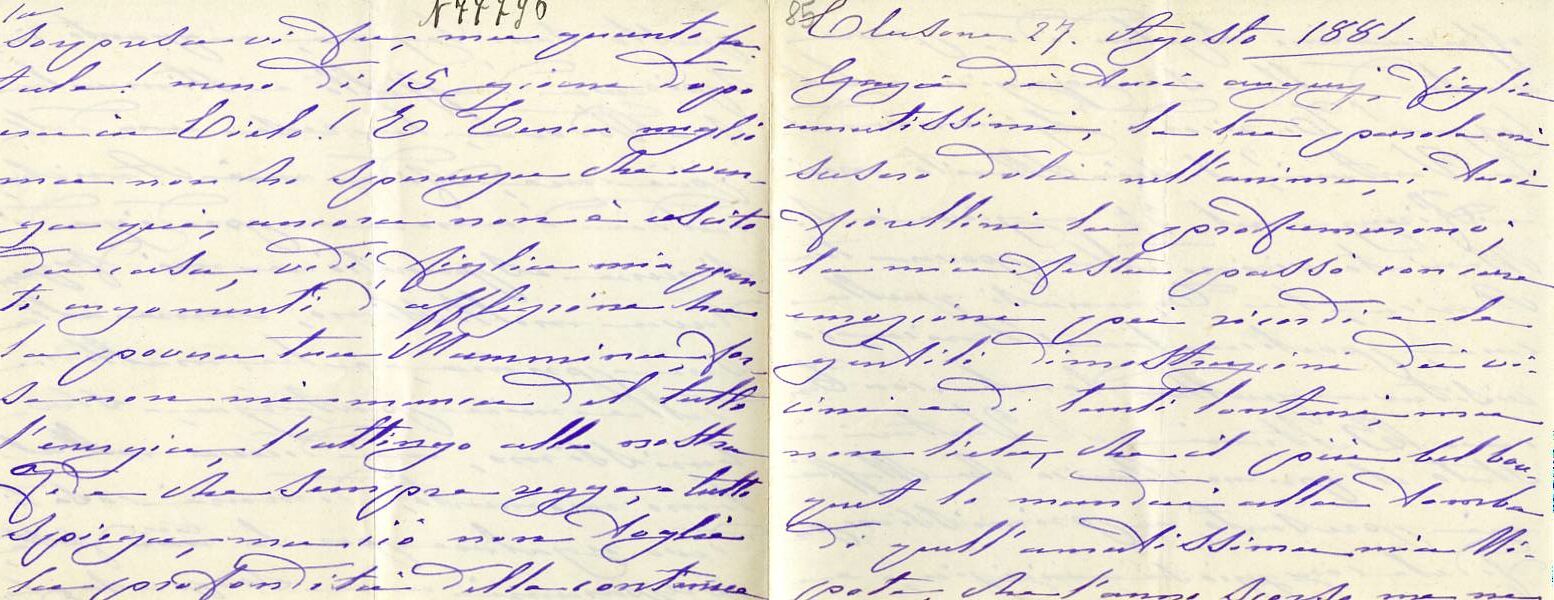 N 77790
sorpresa vi fu, ma quanto fa-
tale! meno di 15 giorni dopo
era in Cielo! E Tenca meglio
ma non ho speranza che ven-
ga qui, ancora non è uscito
da casa, vedi, figlia mia quan-
ti argomenti d'afflizione ha
la povera tua Mammina, for-
se non mi manca del tutto
l'energia, l'attingo alla nostra
Fede che sempre regge, e tutto
spiega, ma ciò non toglie
la profondità della continua
85
Clusone 27. Agosto 1881.
Grazie dei tuoi augurj, figlia
amatissima, la tua parola mi
scese dolce nell'anima, i tuoi
fiorellini la profumarono;
la mia festa passò con care
emozioni pei ricordi e le
gentili dimostrazioni dei vi-
cini e di tanti lontani, ma
non lieta, che il più bel bou-
quet lo mandai alla tomba
di quell'amatissima mia Ni-
pote, che l'anno scorso me ne